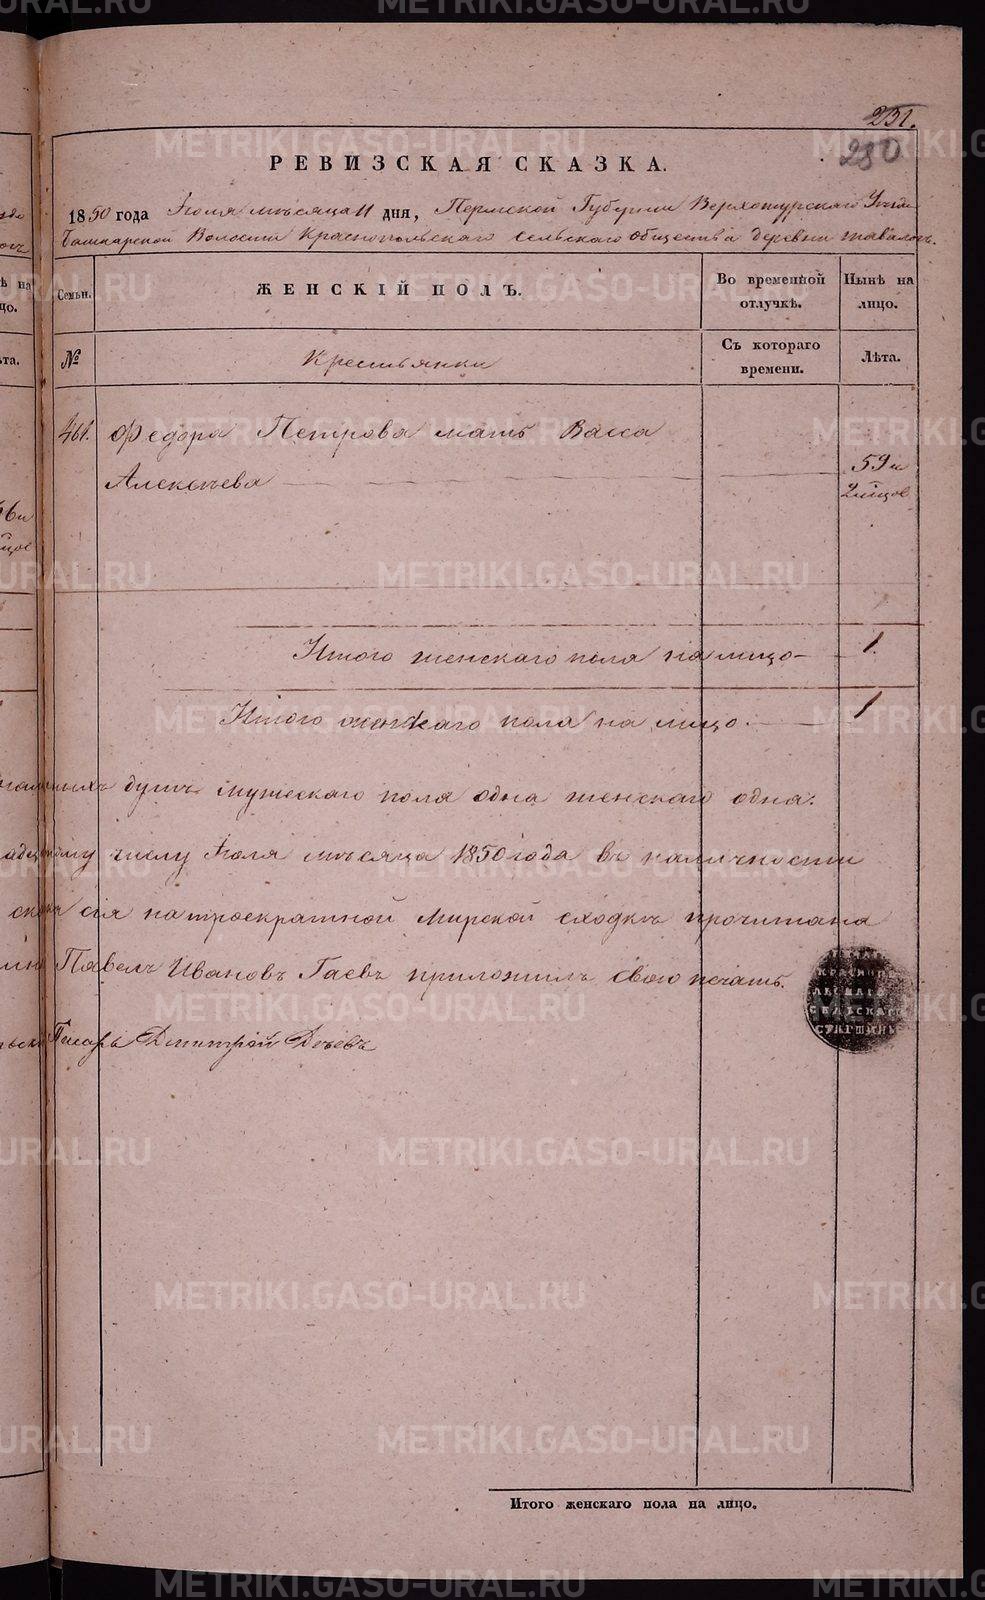 231.
280
РЕВИЗСКАЯ СКАЗКА.
1850 года Іюля мѣсяца 11 дня, Пермской Губерніи Верхотурскаго Уѣзда
Башкарской Волости Краснопольскаго сельскаго общества деревни
Семьи. ЖЕНСКІЙ ПОЛЪ. Во временной отлучкѣ. Нынѣ на лицо.
№ Крестьянки Съ котораго времени. Лѣта.
461. Федора Петрова мать Васса
Алексѣева 59 и
2 мѣцов
Итого женскаго пола на лицо 1.
Итого женскаго пола на лицо 1
душъ мужескаго пола одна женскаго одна.
числу Іюля мѣсяца 1850 года въ наличности
сія на троекратной мирской сходкѣ прочитана
Павелъ Ивановъ Гаевъ приложилъ свою печать.
КРАСНОП
ЛЬСКАГО
СЕЛЬСКАГО
СТАРШИНЫ
Писарь Дмитрій
Итого женскаго пола на лицо.
METRIKI.GASO-URAL.RU